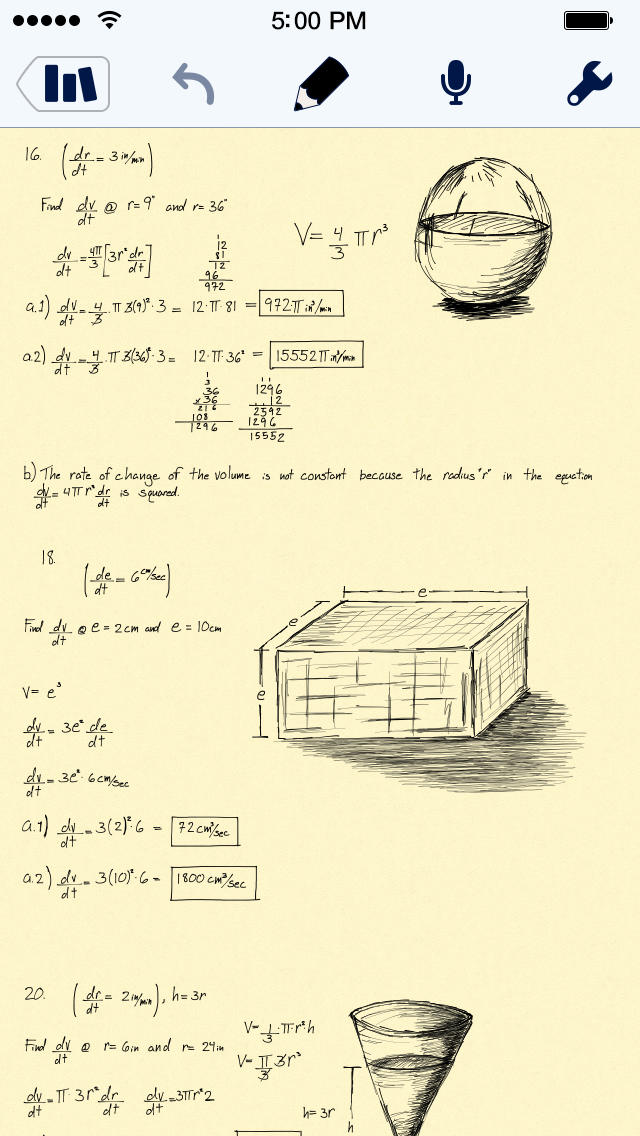 5:00 PM
16. (dr/dt = 3 in/min)
Find dv/dt @ r= 9" and r= 36"
V= 4/3 π r³
dv/dt = 4π/3 [3r² dr/dt]
12
81
12
96
972
a.1) dv/dt = 4/3 · π 3(9)² · 3 = 12·π·81 = 972π in³/min
a.2) dv/dt = 4/3 · π 3(36)² · 3 = 12·π·36² = 15552π in³/min
36
x36
216
108
1296
1296
12
2592
1296
15552
b) The rate of change of the volume is not constant because the radius "r" in the equation
dv/dt = 4π r² dr/dt is squared.
18.
(de/dt = 6 cm/sec)
Find dv/dt @ e = 2cm and e = 10cm
e
e
e
V= e³
dv/dt = 3e² de/dt
dv/dt = 3e² · 6 cm/sec
a.1) dv/dt = 3(2)²·6 = 72 cm³/sec
a.2) dv/dt = 3(10)²·6 = 1800 cm³/sec
20. (dr/dt = 2 in/min), h= 3r
Find dv/dt @ r= 6in and r= 24in
V= 1/3·π·r²·h
V= π/3 3r³
dv/dt = π·3r² dr/dt dv/dt = 3πr²2
h= 3r
h